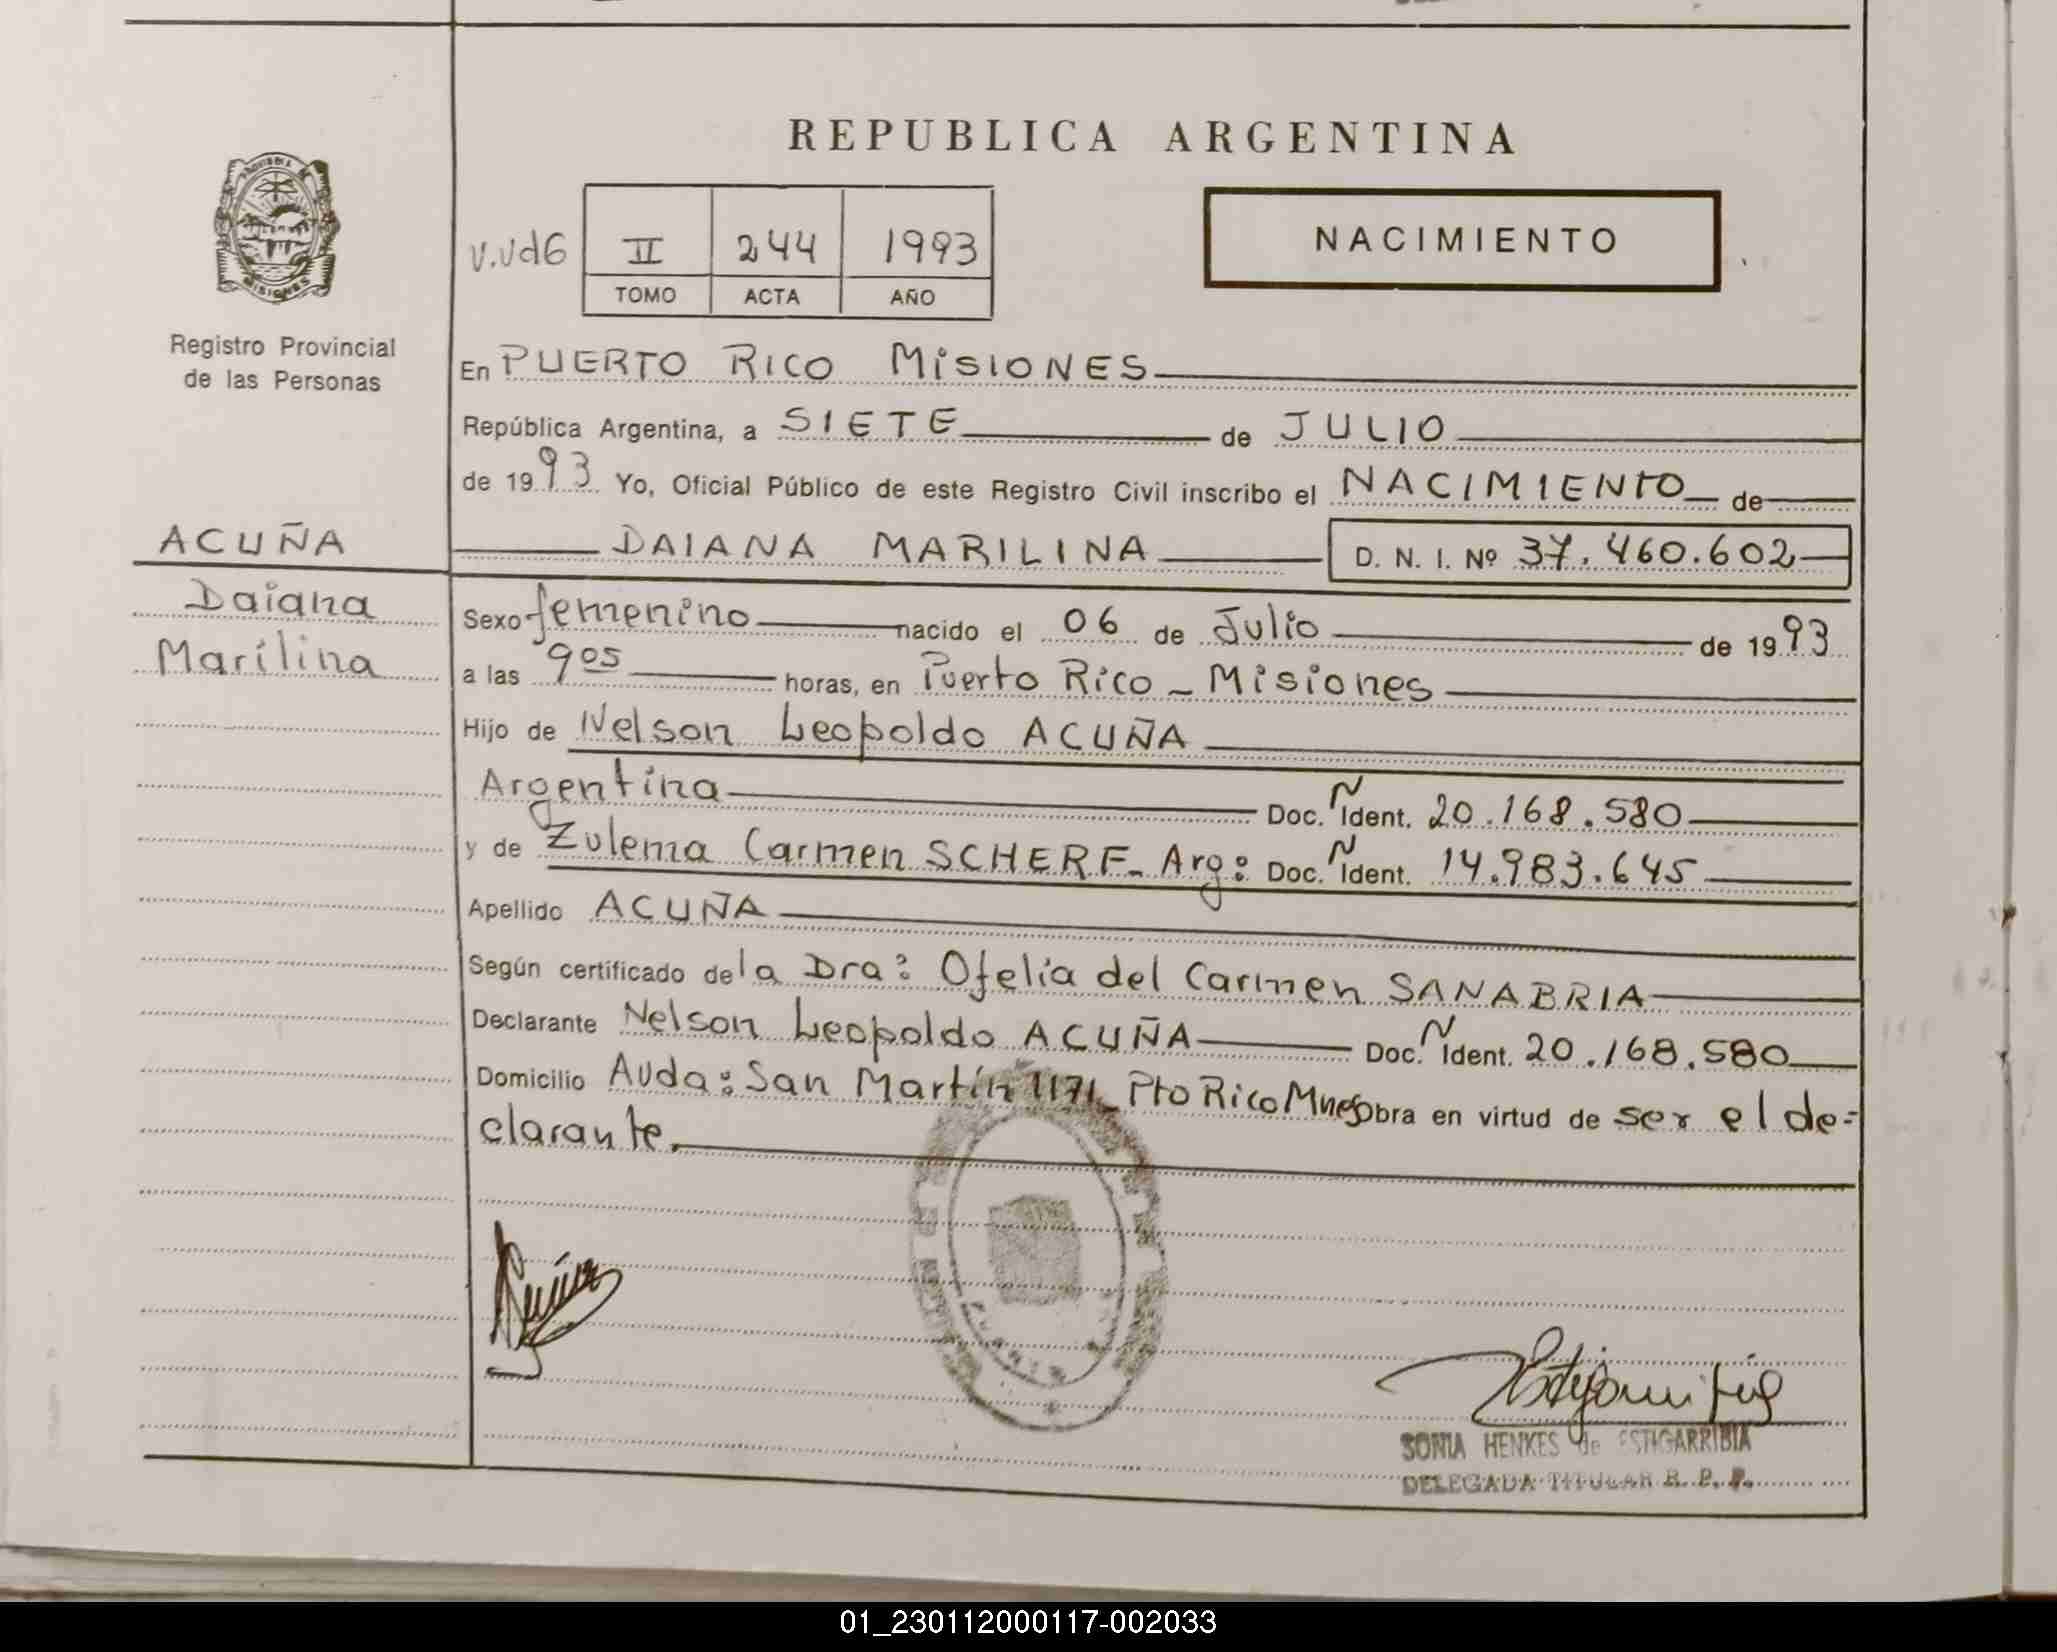 REPUBLICA ARGENTINA
MISIONES
Registro Provincial
de las Personas
V.Ud6
II 244 1993
TOMO ACTA AÑO
NACIMIENTO
En PUERTO RICO MISIONES
República Argentina, a SIETE de JULIO
de 1993 Yo, Oficial Público de este Registro Civil inscribo el NACIMIENTO de
ACUÑA
Daiana
Marilina
DAIANA MARILINA D. N. I. Nº 37.460.602
Sexo femenino nacido el 06 de Julio de 1993
a las 9 05 horas, en Puerto Rico - Misiones
Hijo de Nelson Leopoldo ACUÑA
Argentina Doc. N Ident. 20.168.580
y de Zulema Carmen SCHERF - Arg: Doc. N Ident. 14.983.645
Apellido ACUÑA
Según certificado de la Dra: Ofelia del Carmen SANABRIA
Declarante Nelson Leopoldo ACUÑA Doc. N Ident. 20.168.580
Domicilio Avda: San Martín 1171 - Pto Rico Mnes obra en virtud de ser el de=
clarante.
SONIA HENKES de ESTIGARRIBIA
DELEGADA TITULAR R. P. P.
01_230112000117-002033